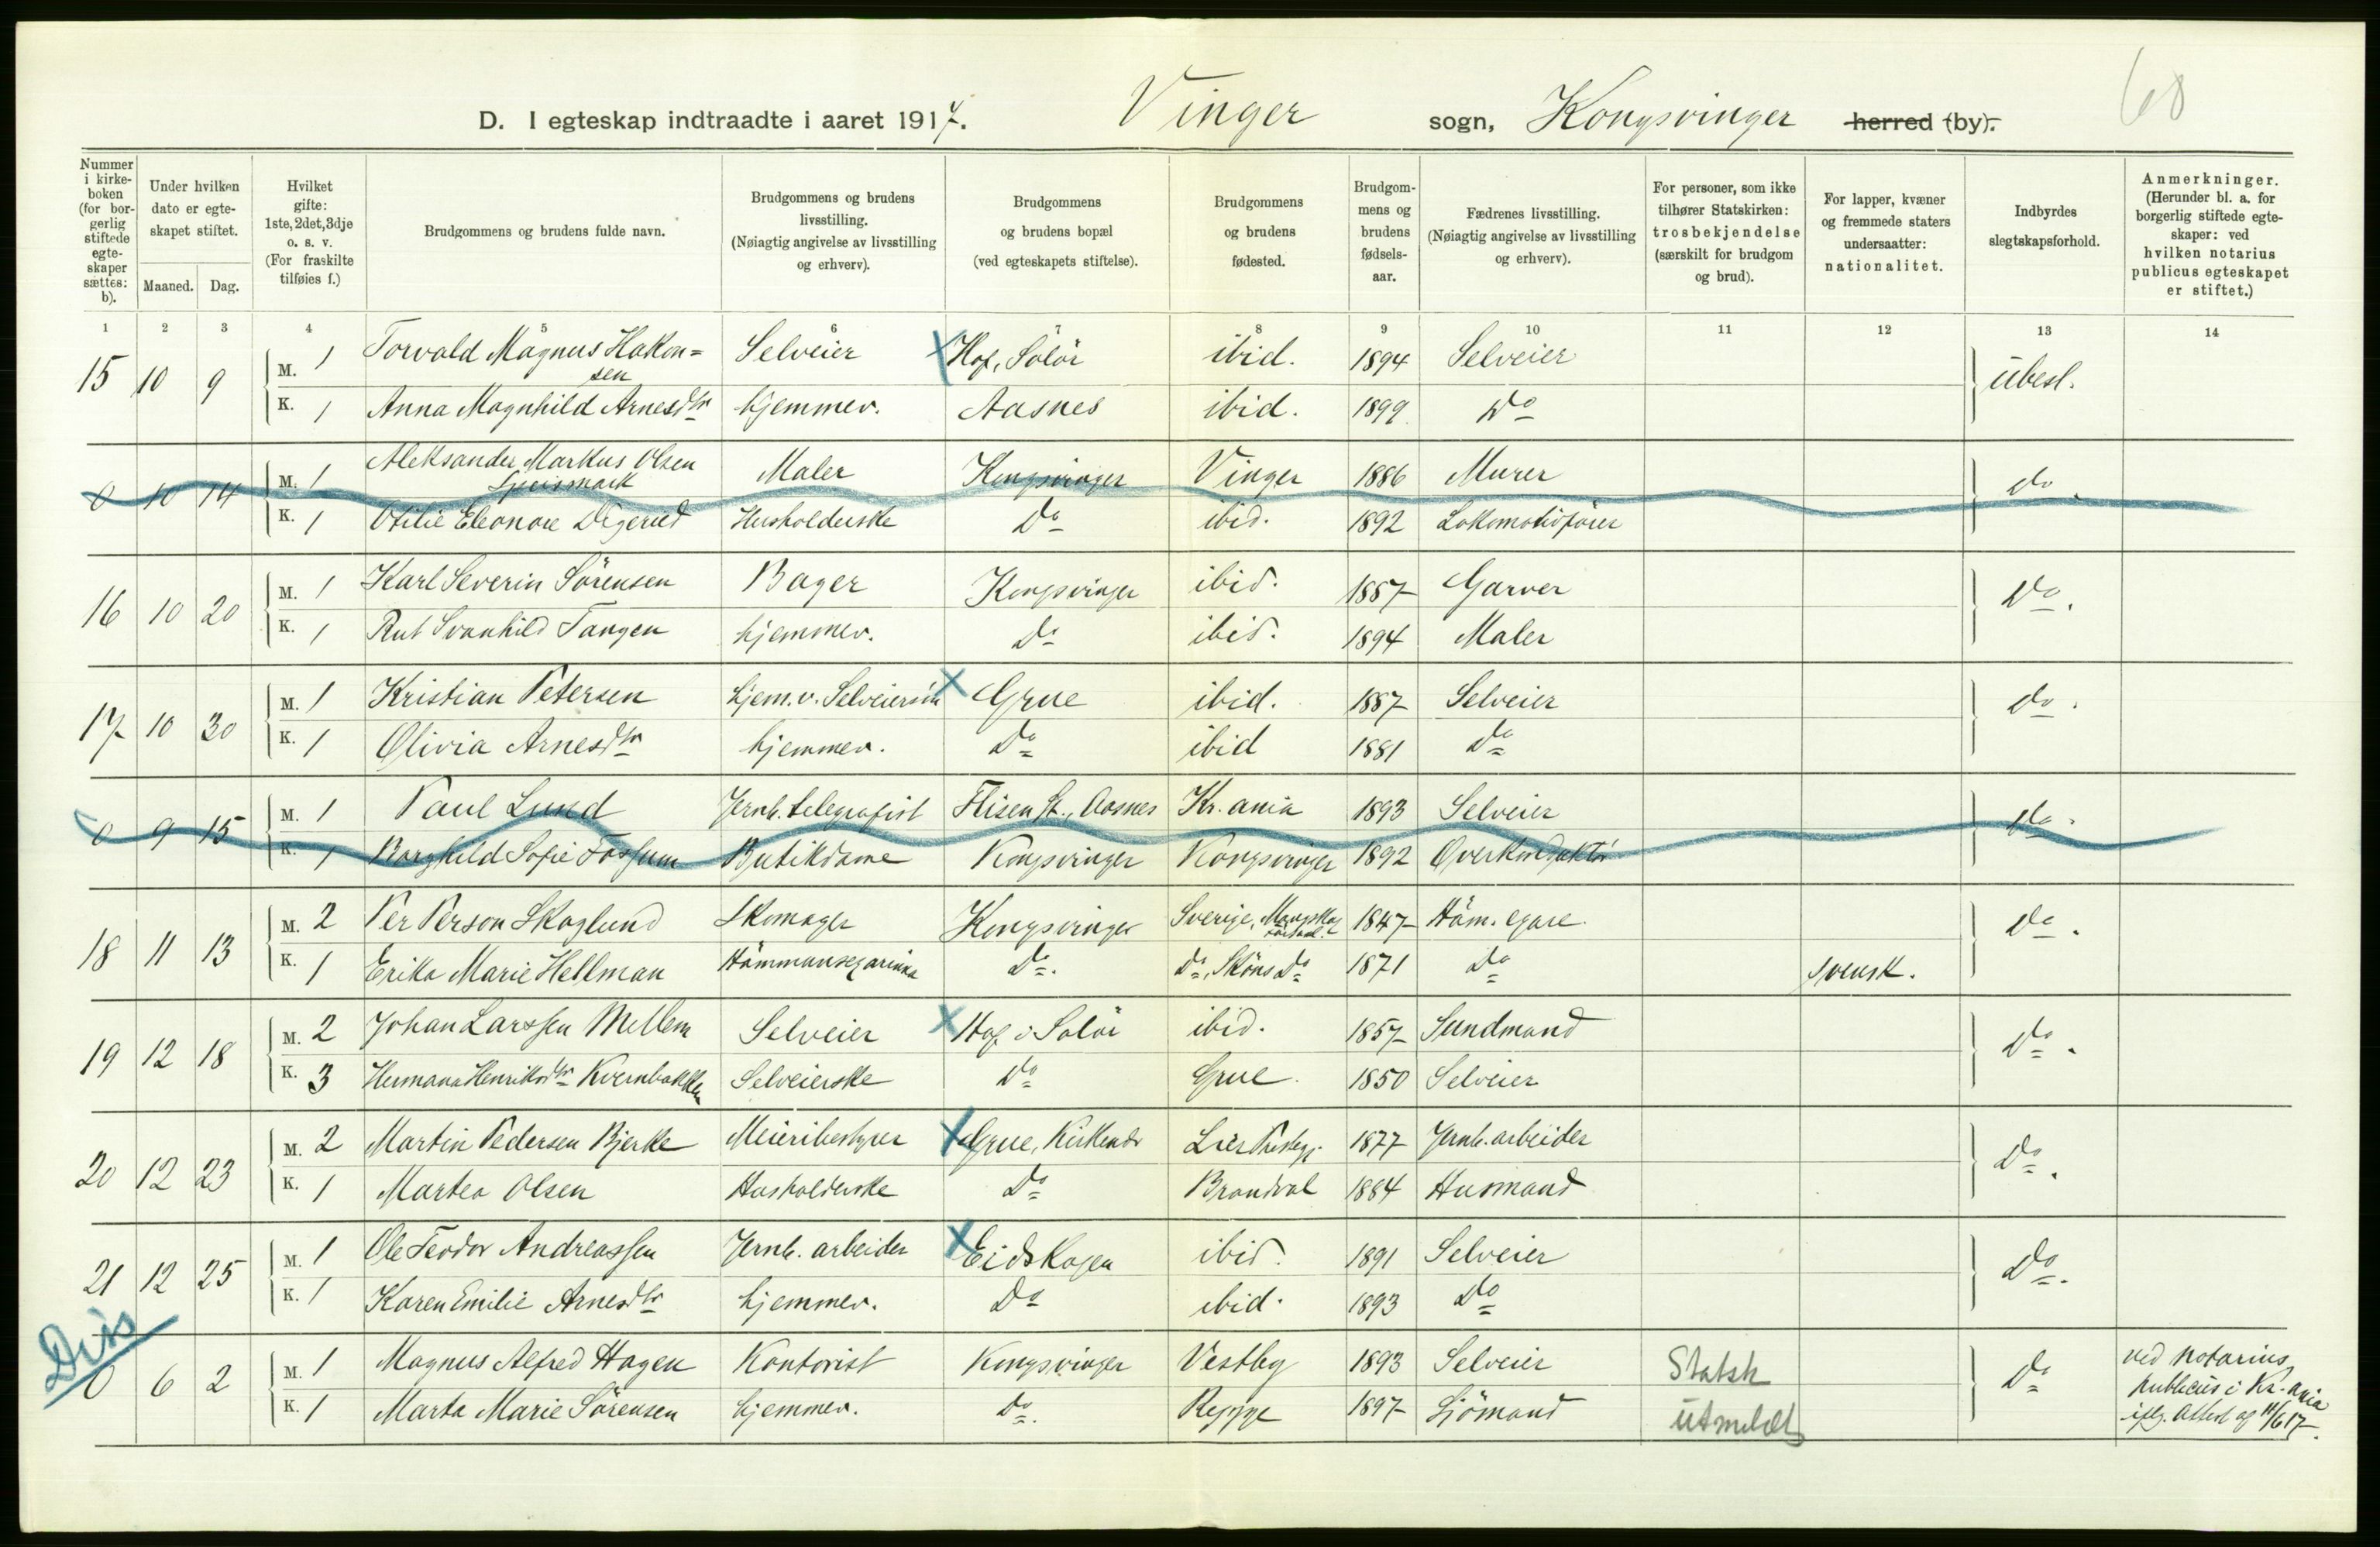 68
D. I egteskap indtraadte i aaret 1917. Vinger sogn, Kongsvinger herred (by).
Nummer i kirkeboken (for borgerlig stiftede egteskaper sættes: b).
Under hvilken dato er egteskapet stiftet.
Maaned. Dag.
Hvilket gifte: 1ste, 2det, 3dje o. s. v. (For fraskilte tilføies f.)
Brudgommens og brudens fulde navn.
Brudgommens og brudens livsstilling. (Nøiagtig angivelse av livsstilling og erhverv).
Brudgommens og brudens bopæl (ved egteskapets stiftelse).
Brudgommens og brudens fødested.
Brudgommens og brudens fødselsaar.
Fædrenes livsstilling. (Nøiagtig angivelse av livsstilling og erhverv).
For personer, som ikke tilhører Statskirken: trosbekjendelse (særskilt for brudgom og brud).
For lapper, kvæner og fremmede staters undersaatter: nationalitet.
Indbyrdes slegtskapsforhold.
Anmerkninger. (Herunder bl. a. for borgerlig stiftede egteskaper: ved hvilken notarius publicus egteskapet er stiftet.)
1 2 3 4 5 6 7 8 9 10 11 12 13 14
15 10 9 M. 1 Torvald Magnus Hakon=sen Selveier Hof, Solör ibid. 1894 Selveier Ubesl.
K. 1 Anna Magnhild Arnesdtr hjemmev. Aasnes ibid. 1899 Do
0 10 14 M. 1 Aleksander Markus Olsen Maler Kongsvinger Vinger 1886 Murer do.
K. 1 Otilie Eleonore Digerud Husholderske Do ibid. 1892 Lokomotivförer
16 10 20 M. 1 Karl Severin Sörensen Bager Kongsvinger ibid. 1887 Garver Do.
K. 1 Rut Svanhild Tangen hjemmev. Do ibid. 1894 Maler
17 10 30 M. 1 Kristian Petersen hjem.v. Selveiersön Grue ibid. 1887 Selveier do.
K. 1 Olivia Arnesdtr hjemmev. Do ibid 1881 Do
0 9 15 M. 1 Paul Lund Jernb. telegrafist Flisen St., Aasnes Kr.ania 1893 Selveier do.
K. 1 Borghild Sofie Fossum Butikdame Kongsvinger Kongsvinger 1892 Overkonduktör
18 11 13 M. 2 Per Person Skoglund Skomager Kongsvinger Sverige, 1847 Häm. egare. Do.
K. 1 Erika Marie Hellman Hämmansegarinna Do. Do, Sköns Do 1871 Do svensk.
19 12 18 M. 2 Johan Larssen Mellem Selveier Hof i Solör ibid. 1857 Sundmand Do.
K. 3 Hermana Henriksdtr Kvernbakken Selveierske Do Grue. 1850 Selveier
20 12 23 M. 2 Martin Pedersen Bjerke Meieribestyrer Grue, Kirkenær Lier Prestegj. 1877 Jernb. arbeider Do.
K. 1 Martea Olsen Husholderske Do Brandval 1884 Husmand
21 12 25 M. 1 Ole Teodor Andreassen Jernb. arbeider Eidskogen ibid. 1891 Selveier Do.
K. 1 Karen Emilie Arnesdtr hjemmev. Do ibid. 1893 Do
Dis
0 6 2 M. 1 Magnus Alfred Hagen Kontorist Kongsvinger Vestby 1893 Selveier Statsk Do ved Notarius publicus i Kr.ania
K. 1 Marta Marie Sörensen hjemmev. Do. Rygge 1897 Sjömand Utmeldt iflg. Attest af 11/6 17.